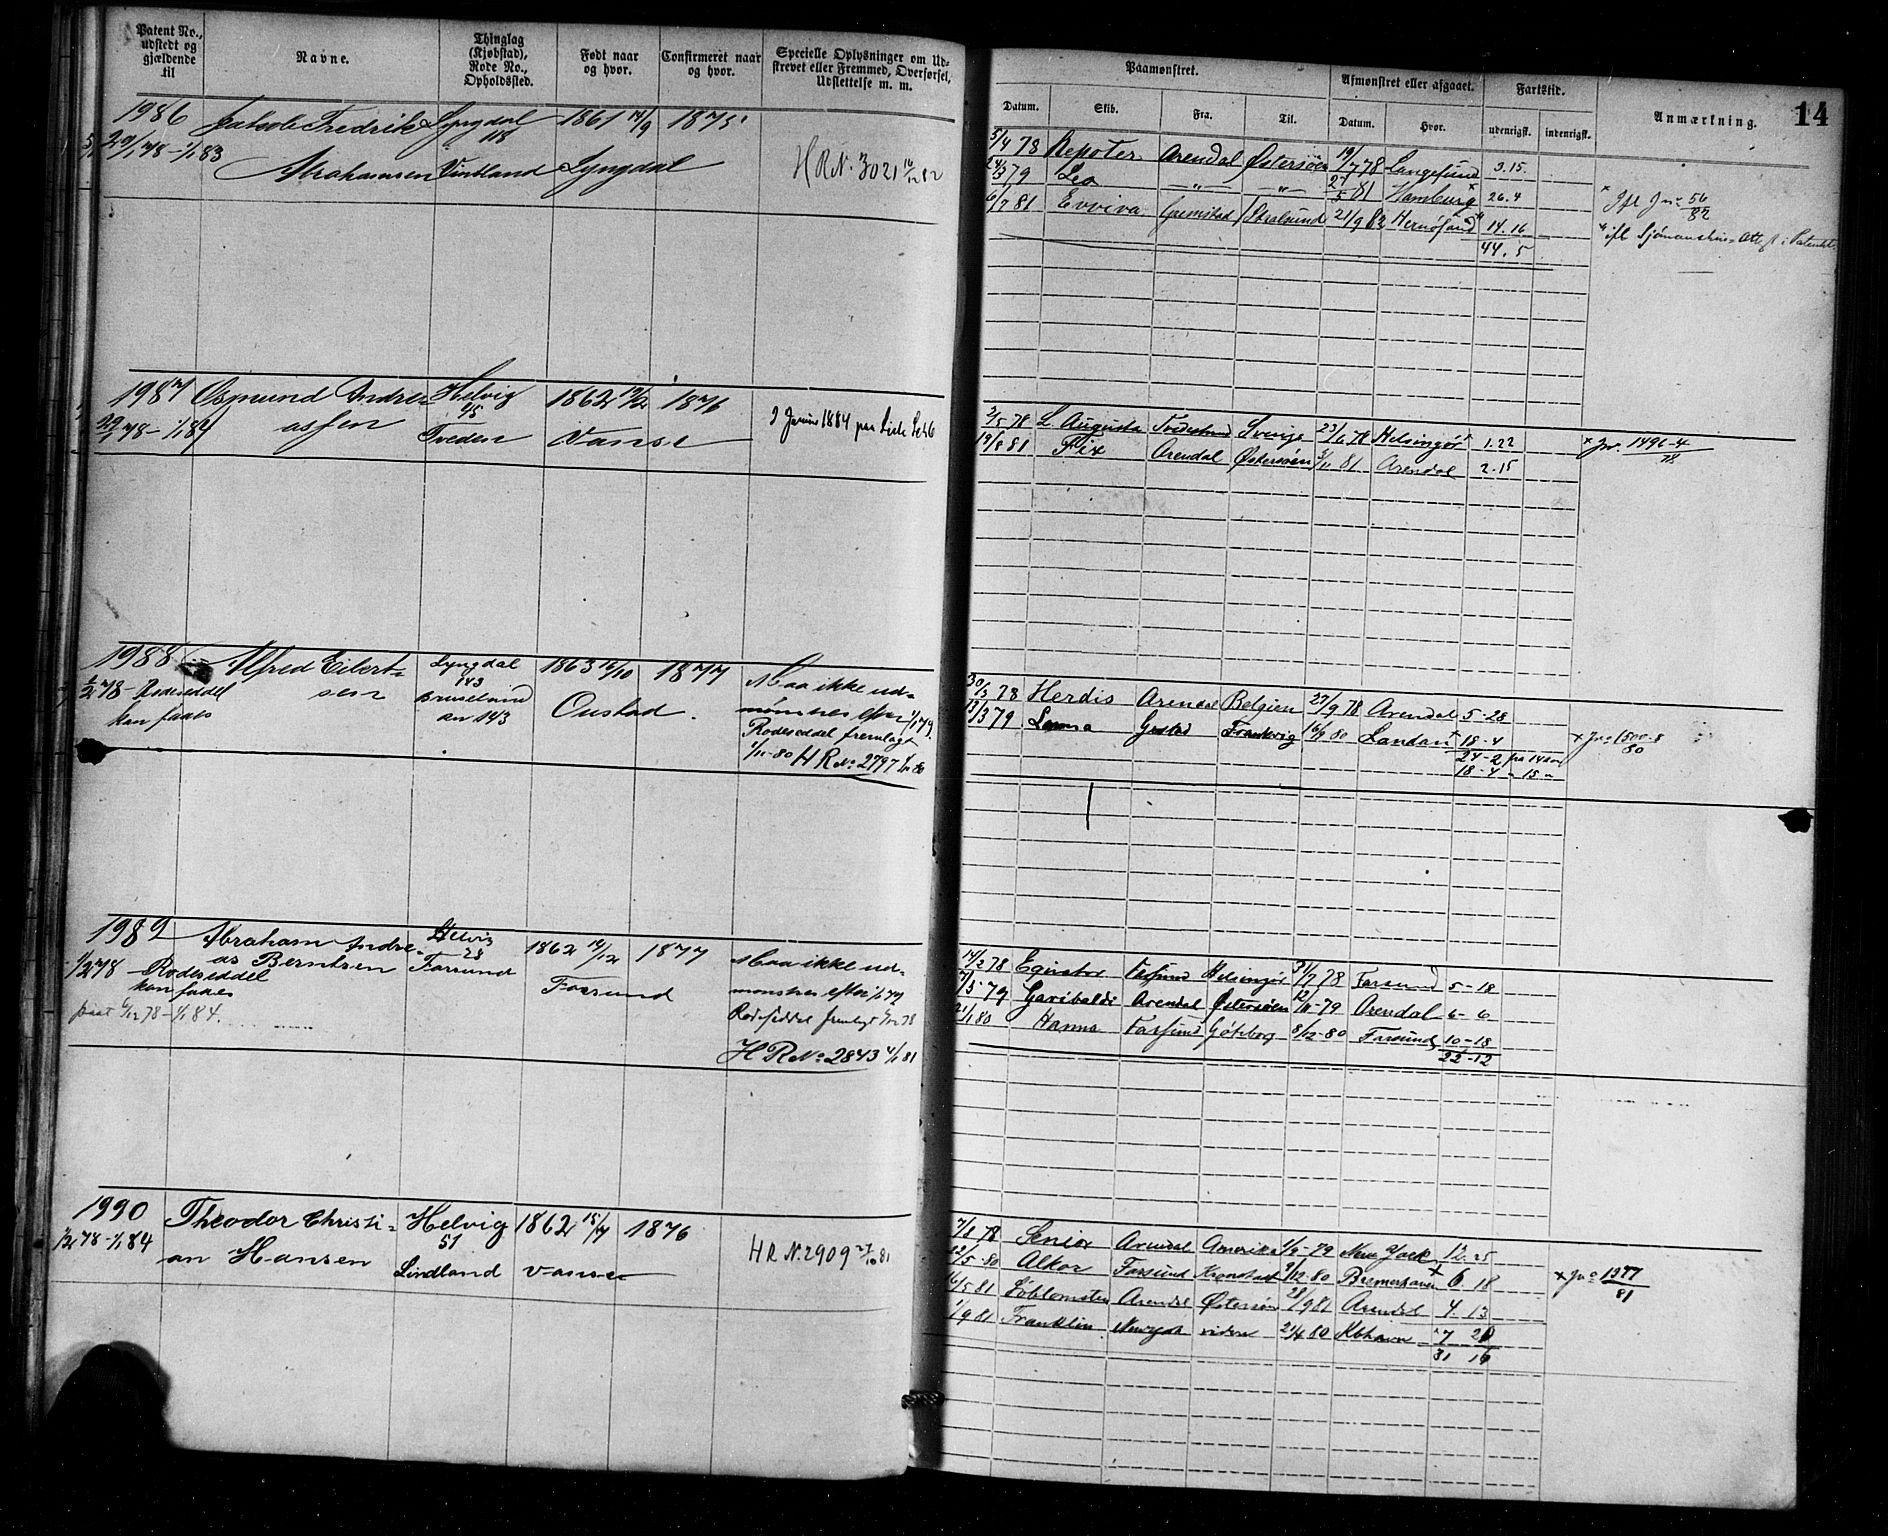 Patent No., udstedt og gjældende til
Navne.
Thinglag (Kjøbstad), Rode No., Opholdssted.
Født naar og hvor.
Confirmeret naar og hvor.
Specielle Oplysninger om Udskrevet eller Fremmed, Overførsel, Udslettelse m. m.
Paamønstret.
Afmønstret eller afgaaet.
Fartstid.
Anmærkning.
14
Datum. Skib. Fra. Til. Datum. Hvor. udenrigsk. indenrigsk.
1986 Fredrik Lyngdal 1861 14/9 1875
29/1 78 - 1/1 83 Abrahamsen Vintland Lyngdal
H R N. 3021 16/12 82
5/4 78 Repoter Arendal Østersøen 19/7 78 Langesund 3.15
24/3 79 Leo — „ — — „ — 27/5 81 Hamburg x 26.4
6/7 81 Evviva Grimstad Stralsund 21/9 82 Hernøsand 14.16
44.5
x Ifl Jn: 56/82
1987 Osmund Andre- Helvig 1862 19/2 1876
22/1 78 - 1/1 84 assen 45 Tveden Vanse
2/5 78 L. Augusta Tvedestrand Sverige 23/6 78 Helsingør x 1.22
19/8 81 Pix Arendal Østersøen 3/11 81 Arendal 2.15
x Jn. 1496-4/78
1988 Alfred Eilert- Lyngdal 1863 16/10 1877
1/2 78 - Rodeseddel sen 143 Oustad.
kan faaes
an 143
Maa ikke ud-
mønstres efter 1/1 79.
Rodeseddel fremlagt
1/11-80 H R No 2797
30/3 78 Herdis Arendal Belgien 27/9 78 Arendal 5-28
13/3 79 Lanna 16/9 80 18-4
24-2 fra 14 aar
18-4 „ 15 „
x Jn: 1800-8/80
1989 Abraham Andre- Helvig 1862 14/12 1877
1/2 78 - Rodeseddel as Berntsen 28 Farsund Farsund
kan faaes
78 - 1/1 84.
Maa ikke ud-
mønstres efter 1/1 79
Rodeseddel fremlagt 6/12 78
H R No 2843 4/1 81
14/2 78 Farsund Helsingør 31/7 78 Farsund 5-18
7/5 79 Garibaldi Arendal Østersøen 12/11-79 Arendal 6-6
21/1 80 Hanna Farsund Göteborg 8/12-80 Farsund 10-18
22-12
1990 Theodor Christi- Helvig 1862 15/7 1876
1/2 78 - 1/1 84 an Hansen 51 Lindland Vanse
H R N. 2909 27/10 81
7/8 78 Senior Arendal Amerika 1/9-79 New York 12.25
22/5-80 Alkor Farsund Kronstadt 9/12-80 Bremerhaven x 6.18
16/5 81 Løblomsten Arendal Østersøn 28/9 81 Arendal 4.13
1/9 81 Franklin videre 21/4 80 Kbhavn 7 20
31 16
x Jn: 1377/81